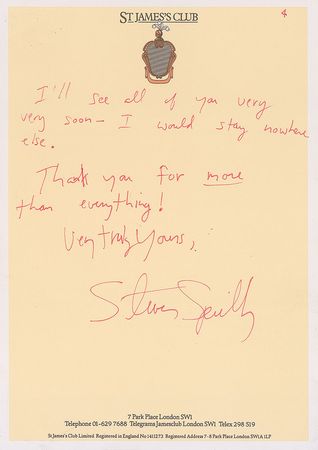 4
ST JAMES'S CLUB
I'll see all of you very
very soon— I would stay nowhere
else.
Thank you for more
than everything!
Very truly yours,
Steven
7 Park Place London SW1
Telephone 01-629 7688 Telegrams Jamesclub London SW1 Telex 298 519
St James's Club Limited Registered in England No 1411273 Registered Address 7-8 Park Place London SW1A 1LP